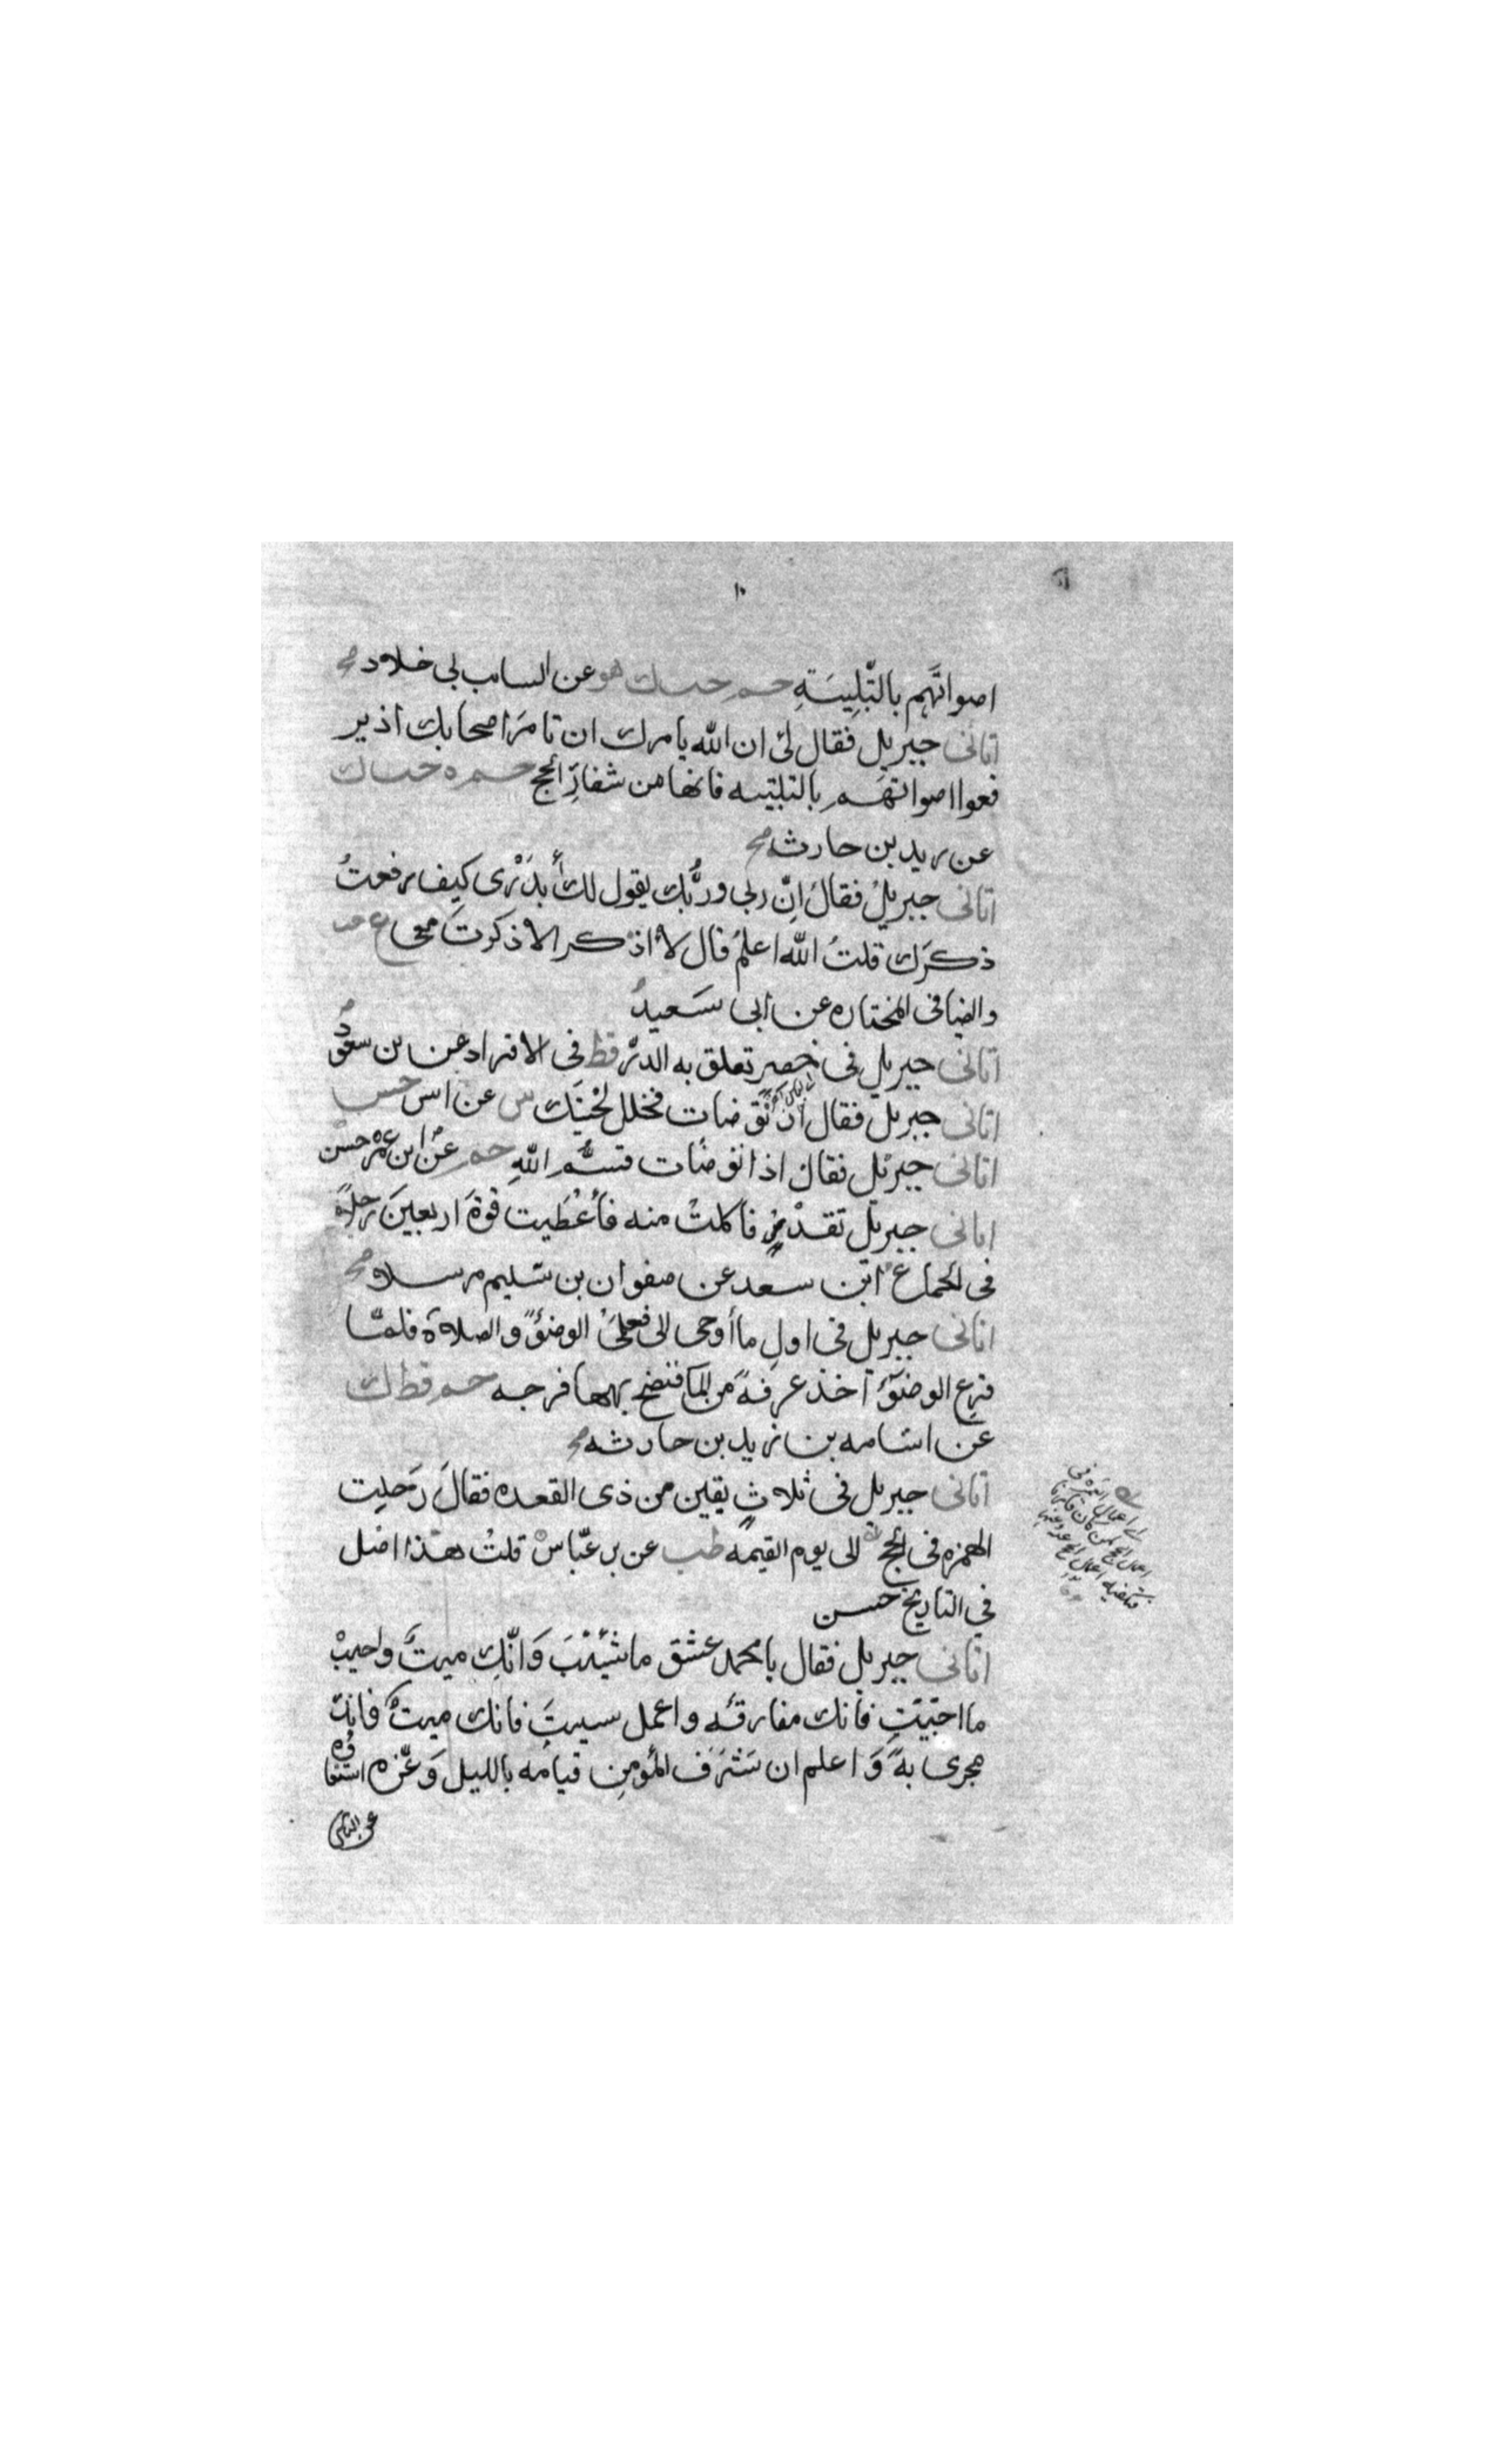 ١٠
اصواتهم بالتلبيته حم حب ك هو عن السايب بن خلاد صح
اتانى جبريل فقال لى ان الله يامرك ان تامر اصحابك ان ير
فعوا اصواتهم بالتلبيه فانها من شعائر الحج حم ه حب ك
عن زيد بن حارثه صح
اتانى جبريل فقال ان ربى وربك يقول لك أتدرى كيف رفعت
ذكرك قلت الله اعلم قال لا اذكر الا ذكرت معى ع حب
والضيا فى المختاره عن ابى سعيد
اتانى جبريل فى خضر تعلق به الدر قط فى الافراد عن بن مسعود
اتانى جبريل فقال اذا توضات فخلل لحيتك ش عن انس حسن
اتانى جبريل فقال اذا توضات
اتانى جبريل بقدر فاكلت منه فأعطيت قوة اربعين رجلا
فى الجماع ابن سعد عن صفوان بن سليم مرسلا صح
اتانى جبريل فى اول ما أوحى الى فعلمنى الوضؤ والصلاة فلما
فرغ الوضؤ اخذ غرفة من الما فنضح بها فرجه حم قط ك
عن اسامه بن زيد بن حارثه صح
اتانى جبريل فى ثلاث بقين من ذى القعده فقال دخلت
العمره فى الحج الى يوم القيمه طب عن بن عباس قلت هذا اصل
فى التاريخ حسن
اتانى جبريل فقال يا محمد عش ما شيت وانك ميت واحبب
ما احببت فانك مفارقه واعمل ما شيت فانك
مجزى به واعلم ان شرف المؤمن قيامه بالليل وعزه استغنا
وه
عن الناس